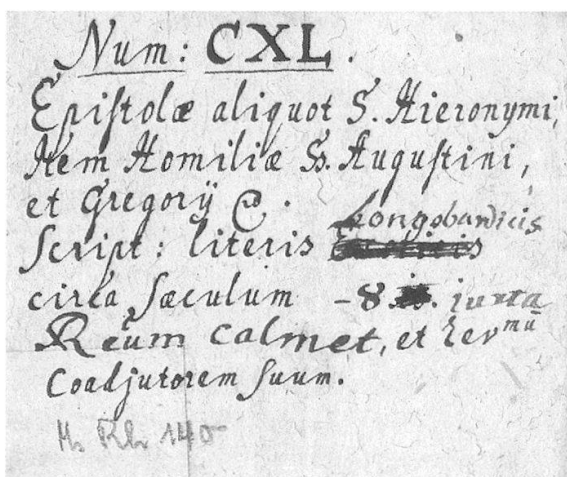 Num: CXL.
Epistolæ aliquot S. Hieronymi,
Item Homiliæ SS. Augustini,
et Gregorÿ P.
Longobardicis
Script: literis
circa Sæculum – 8 . iuxta
Reũm Calmet, et Rev^mũ
Coadjutorem suum.
Ms Rh 140